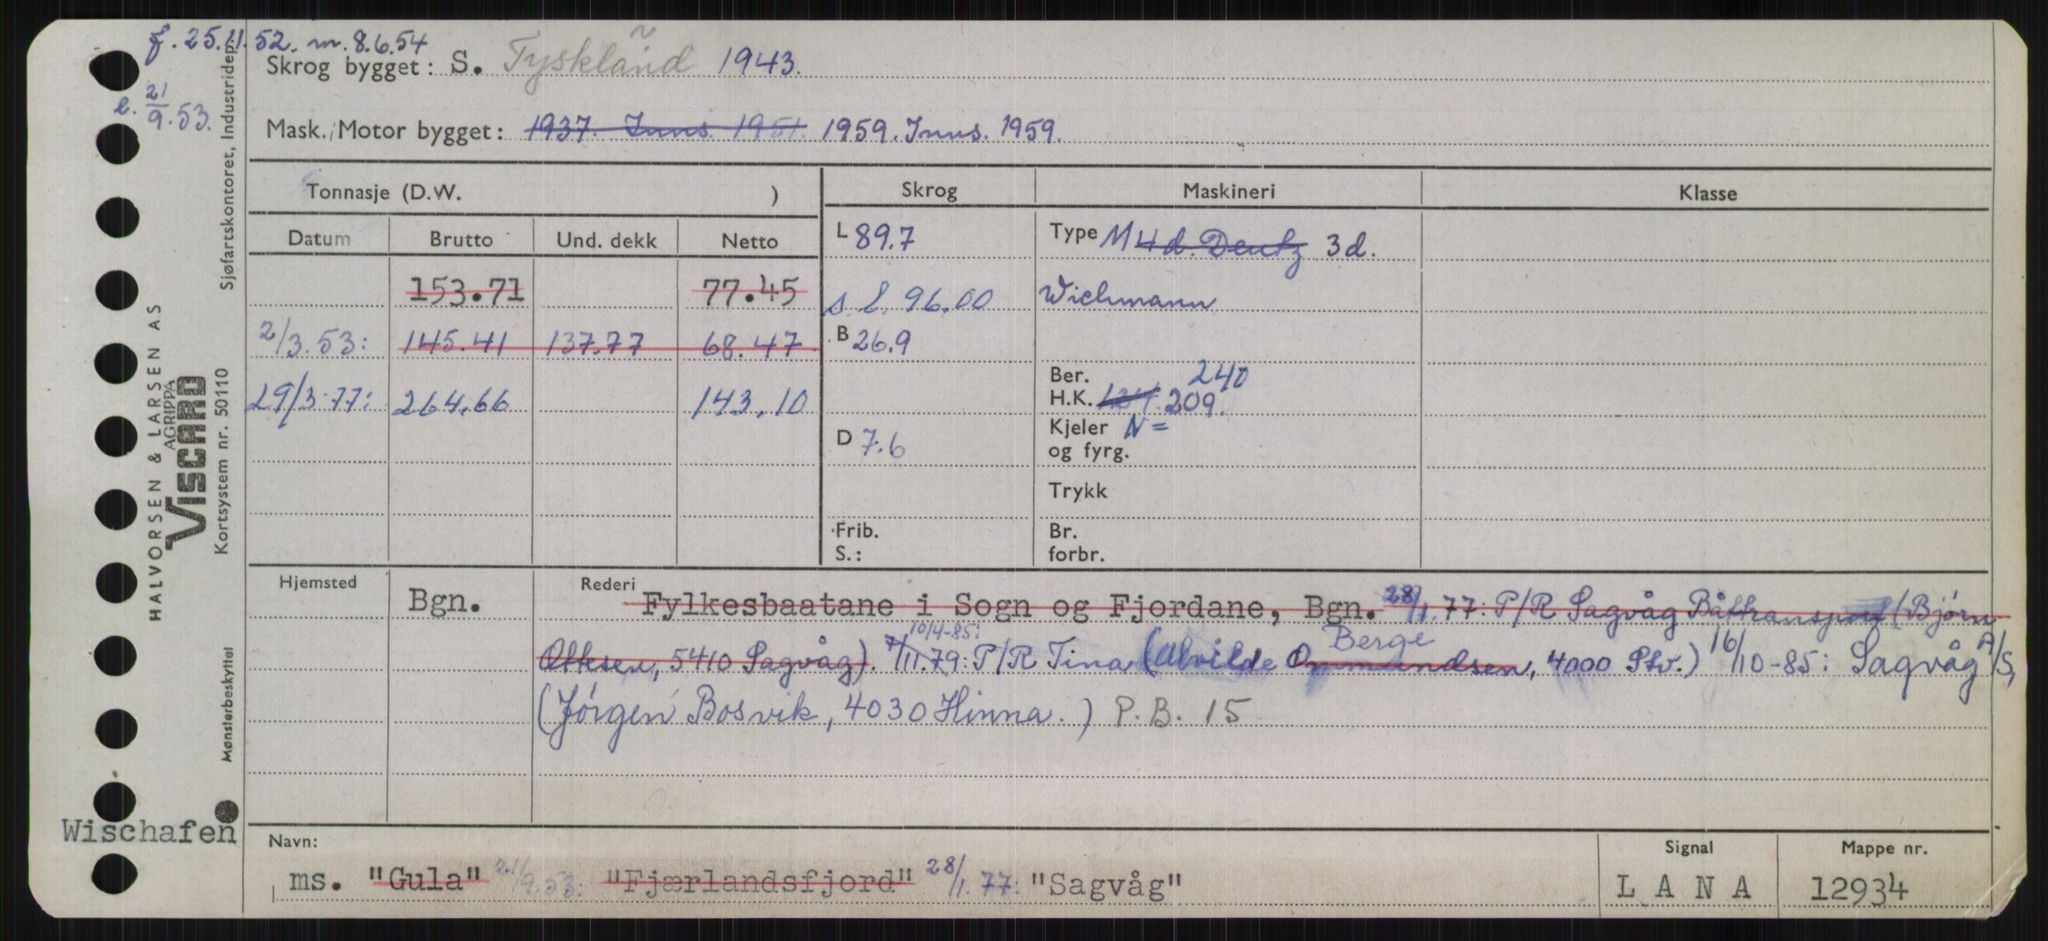 f. 25.11.52. m. 8.6.54
Skrog bygget: S. Tyskland 1943.
e. 21/9.53.
Mask./Motor bygget: 1937. Inns. 1951. 1959. Inns. 1959.
Tonnasje (D.W. ) Skrog Maskineri Klasse
Datum Brutto Und. dekk Netto L 89.7 Type M 4 d. Deutz 3 d.
153.71 77.45 s. l. 96.00 Wichmann
2/3.53: 145.41 137.77 68.47 B 26.9
Ber. 240
29/3-77: 264.66 143.10 H.K. 209.
D 7.6 Kjeler N =
og fyrg.
Trykk
Frib. Br.
S.: forbr.
Hjemsted Bgn. Rederi Fylkesbaatane i Sogn og Fjordane, Bgn. 28/1.77: P/R Sagvåg Båttransport (Bjørn
Ottesen, 5410 Sagvåg). 7/11.79: P/R Tina 10/4-85: (Alvilde Omundsen Berge, 4000 Stv.) 16/10-85: Sagvåg A/S,
(Jørgen Bosvik, 4030 Hinna.) P.B. 15
Wischafen
Navn: Signal Mappe nr.
ms. "Gula" 21/9.53: "Fjærlandsfjord" 28/1.77: "Sagvåg" L A N A 12934
Sjøfartskontoret, Industridep.
HALVORSEN & LARSEN AS
AGRIPPA
VISCARD
Kortsystem nr. 50110
Mønsterbeskyttet